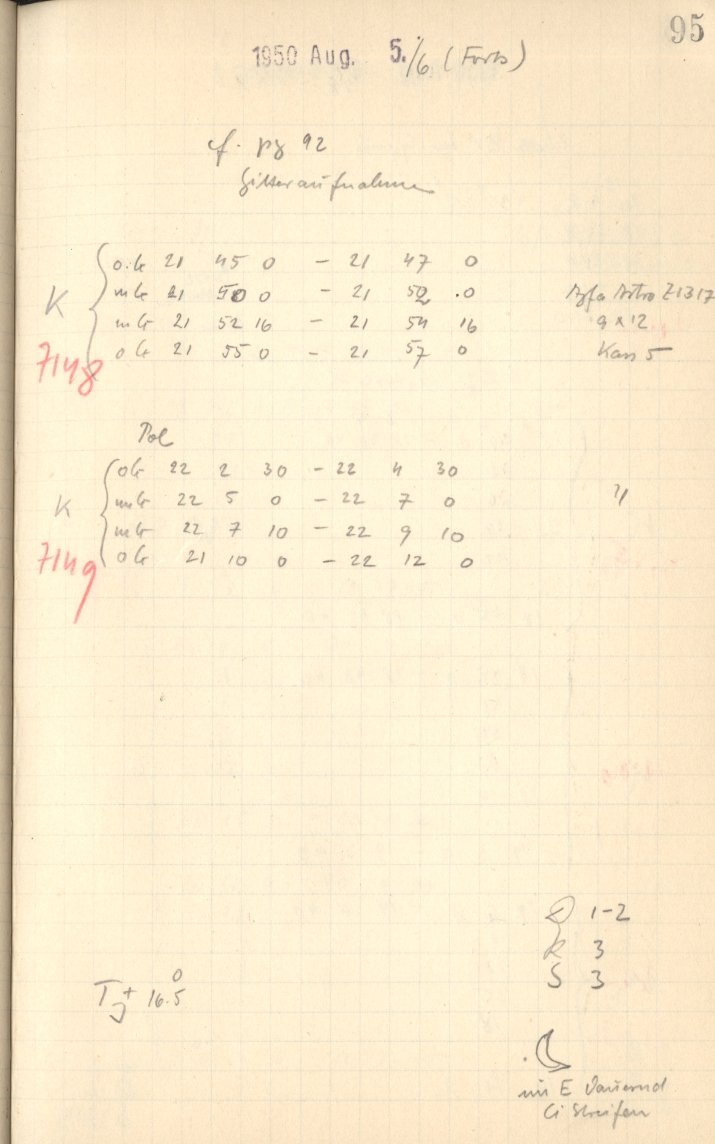 95
1950 Aug. 5./6 (Forts)
cf. pg 92
Gitteraufnahme
K
o.Gr 21 45 0 - 21 47 0
mGr 21 50 0 - 21 52 .0 Agfa Astro Z1317
mGr 21 52 16 - 21 54 16 9 x 12
oGr 21 55 0 - 21 57 0 Kass 5
7148
Pol
K
oGr 22 2 30 - 22 4 30
mGr 22 5 0 - 22 7 0 "
mGr 22 7 10 - 22 9 10
oGr 21 10 0 - 22 12 0
7149
1-2
R 3
S 3
T + 16.5
im E dauernd
Ci Streifen